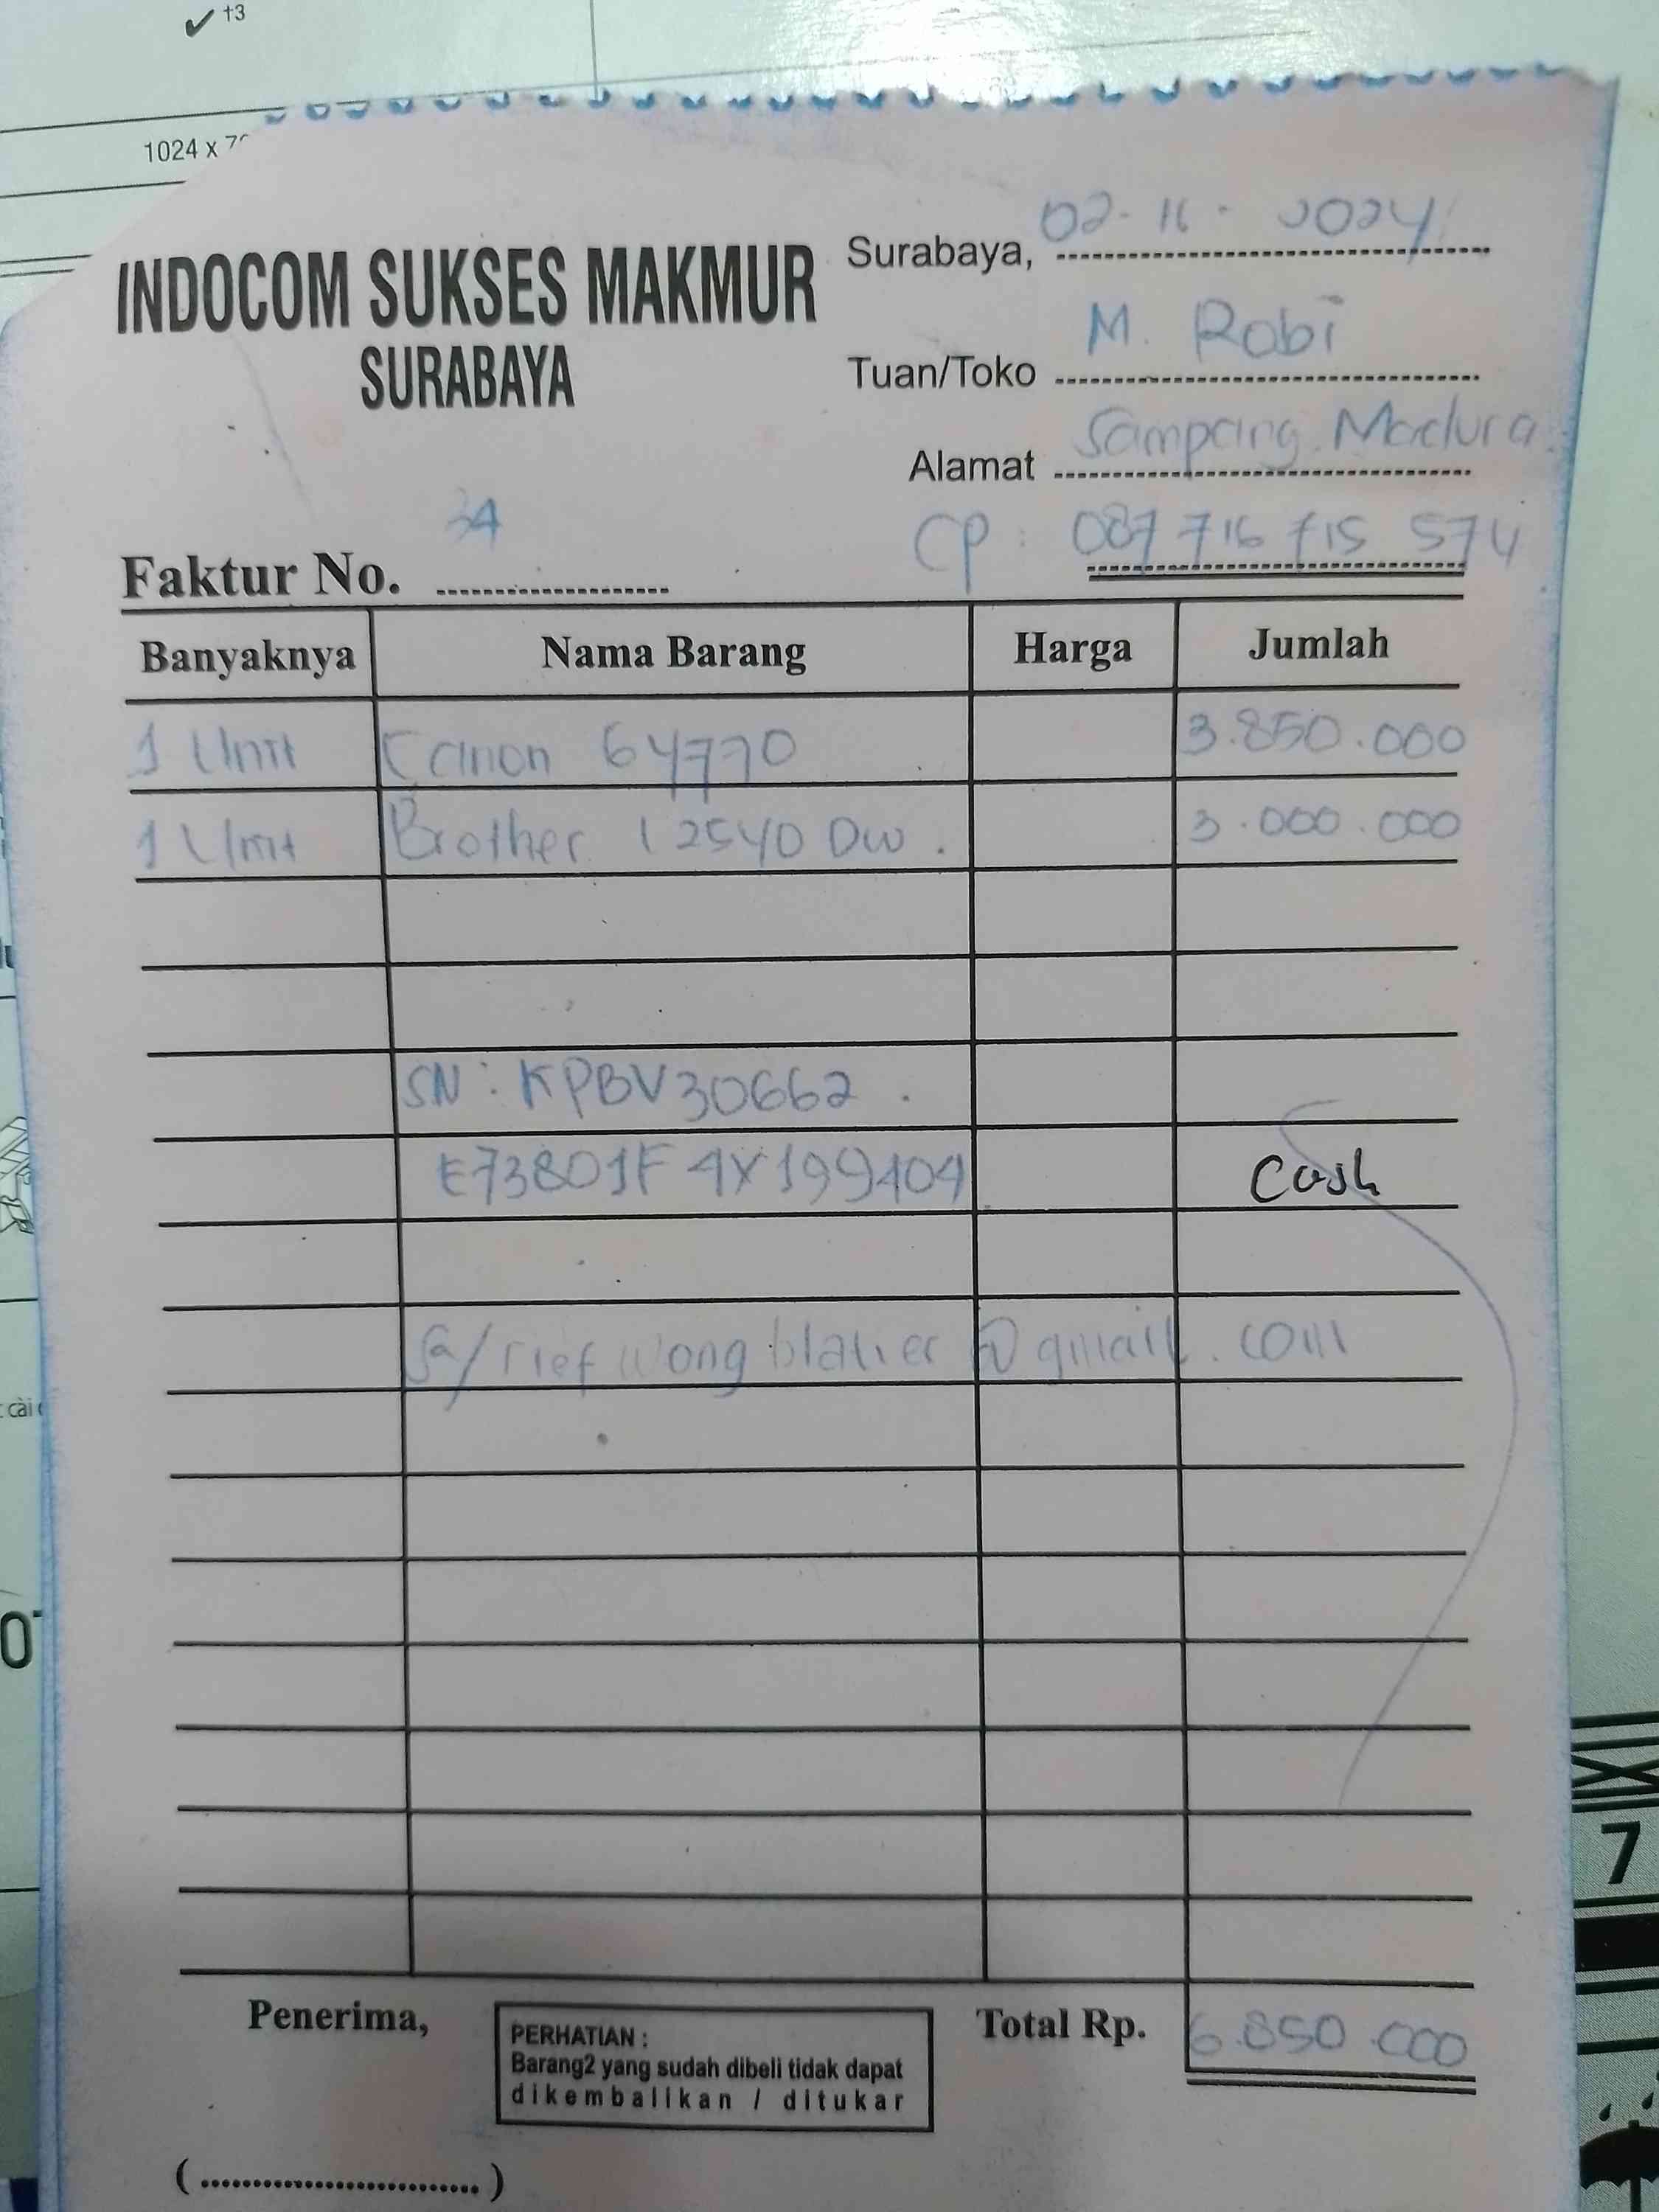 ✓ †3
1024 x
INDOCOM SUKSES MAKMUR
SURABAYA
Surabaya, 02-16-2024
Tuan/Toko M. Robi
Alamat Sampang. Madura.
CP : 087 716 715 574
Faktur No. 34
Banyaknya Nama Barang Harga Jumlah
1 Unit Canon 64770 3.850.000
1 Unit Brother L2540 DW. 3.000.000
SN : KPBV30662.
E73801F4Y199404
Cash
wong blater @gmail.com
Penerima,
PERHATIAN :
Barang2 yang sudah dibeli tidak dapat
dikembalikan / ditukar
Total Rp. 6.850.000
(..............................)
7